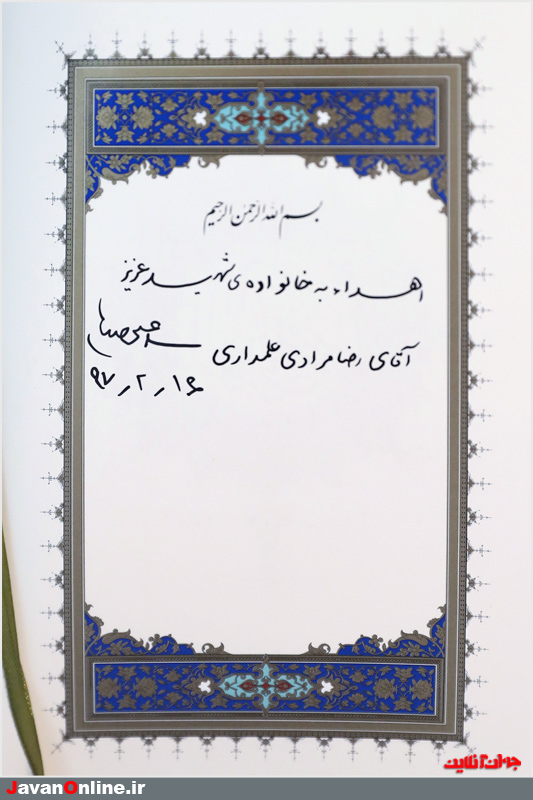 بسم الله الرحمن الرحیم
اهداء به خانواده‌ی شهید عزیز
آقای رضا مرادی علمداری
۹۷٫۲٫۱۶
جوان آنلاین
JavanOnline.ir